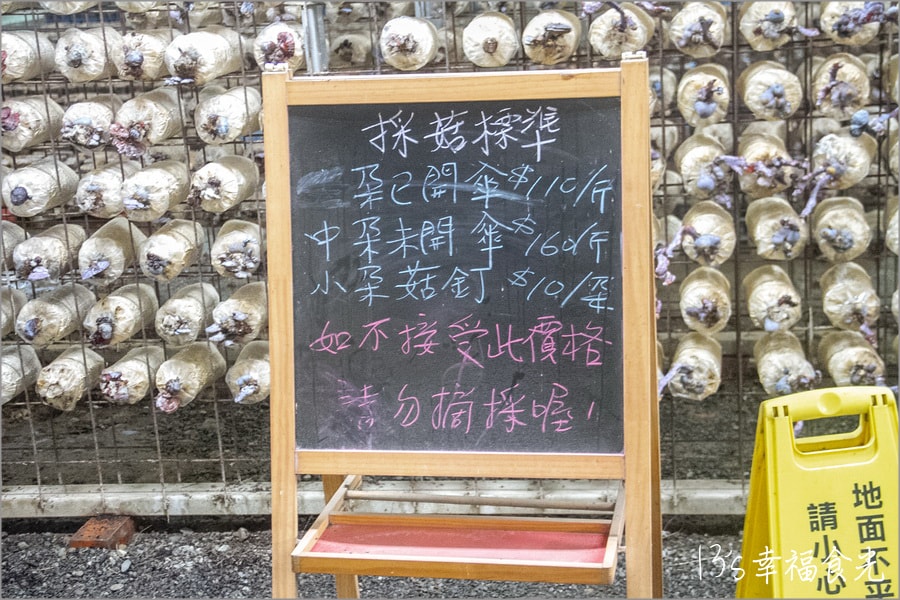 採菇標準
朵已開傘$110/斤
中朵未開傘$160/斤
小朵菇釘.$10/朵
如不接受此價格
請勿摘採喔!
地面不平
請小心
13's幸福食光